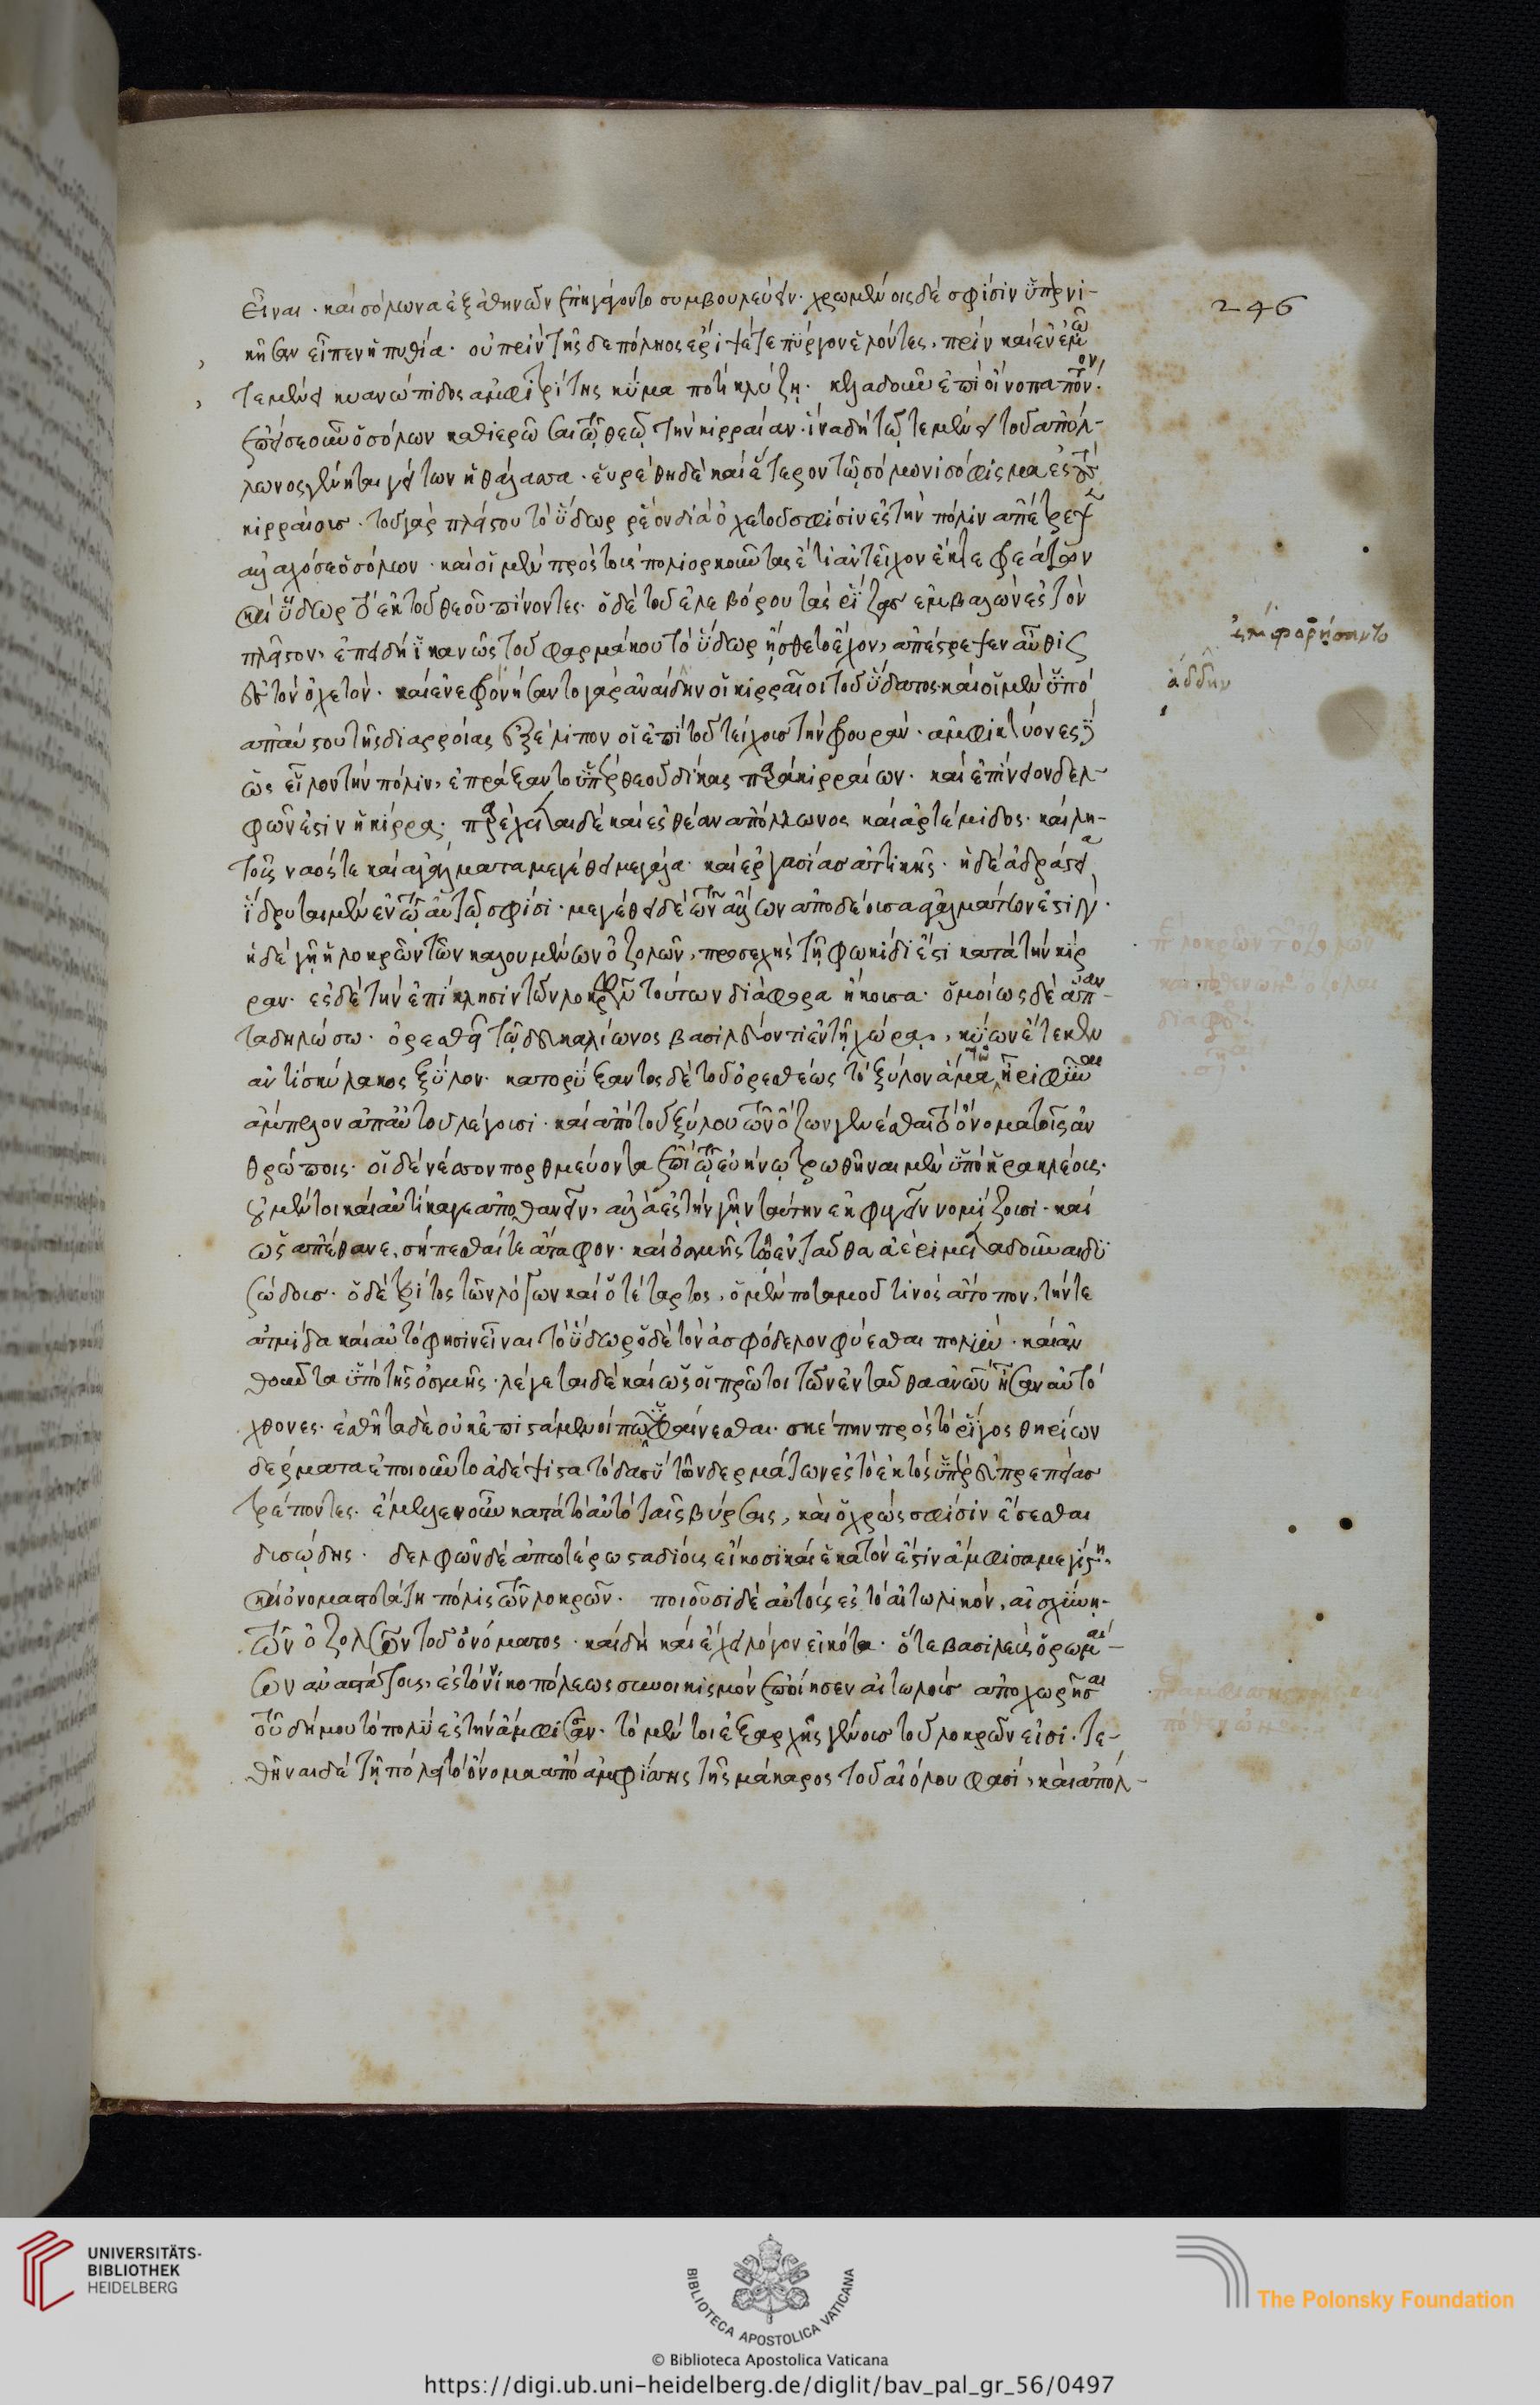 εἶναι · καὶ σόλωνα ἐξ ἀθηνῶν ἐπηγάγοντο συμβουλεύειν · χρωμένοις δέ σφισιν ὑπὲρ νί-
246
κης ἀνεῖπεν ἡ πυθία · οὐ πρὶν τῆσδε πόληος ἐρίψετε πύργον ἑλόντες, πρίν κεν ἐμῶ
τεμένει κυανώπιδος ἀμφιτρίτης κῦμα ποτικλύζη · κελαδοῦν ἐπὶ οἴνοπα πόντον ·
ἔπεισεν οὖν ὁ σόλων καθιερῶσαι τῷ θεῷ τὴν κιρραίαν · ἵνα δὴ τῷ τεμένει τοῦ ἀπόλ-
λωνος γένηται γείτων ἡ θάλασσα · εὑρέθη δὲ καὶ ἕτερον τῷ σόλωνι σόφισμα ἐς τοὺς
κιρραίους · τοῦ γὰρ πλείστου τὸ ὕδωρ ῥέον δι᾽ ὀχετοῦ σφίσιν ἐς τὴν πόλιν ἀπέτρεψεν
ἀλλαχόσε ὁ σόλων · καὶ οἱ μὲν πρὸς τοὺς πολιορκοῦντας ἔτι ἀντεῖχον ἔκ τε φρεάτων
καὶ ὕδωρ τὸ ἐκ τοῦ θεοῦ πίνοντες · ὁ δὲ τοῦ ἐλεβόρου τὰς ῥίζας ἐμβαλὼν ἐς τὸν
ἐμφορήσαντο
πλεῖστον, ἐπειδὴ ἱκανῶς τοῦ φαρμάκου τὸ ὕδωρ ᾔσθετο ἔχον, ἀπέστρεψεν αὖθις
ἄδδην
ἐς τὸν ὀχετόν · καὶ ἐνεφορήσαντο γὰρ ἀναίδην οἱ κιρραῖοι τοῦ ὕδατος καὶ οἱ μὲν ὑπὸ
ἀπαύστου τῆς διαρροίας ἐξέλιπον οἱ ἐπὶ τοῦ τείχους τὴν φρουράν · ἀμφικτύονες δὲ
ὡς εἷλον τὴν πόλιν, ἐπράξαντο ὑπὲρ θεοῦ δίκας παρὰ κιρραίων · καὶ ἐπίνειον δελ-
φῶν ἐστιν ἡ κίρρα · παρέχεται δὲ καὶ ἐς θέαν ἀπόλλωνος καὶ ἀρτέμιδος · καὶ λη-
τοῦς ναόν τε καὶ ἀγάλματα μεγέθει μεγάλα · καὶ ἐργασίας ἀττικῆς · ἡ δὲ ἀδράστεια
ἵδρυται μὲν ἐν τῷ αὐτῷ σφίσι · μεγέθει δὲ τῶν ἄλλων ἀποδέουσα ἀγαλμάτων ἐστίν ·
ἡ δὲ γῆ ἡ λοκρῶν τῶν καλουμένων ὀζολῶν, προσεχὴς τῇ φωκίδι ἐστὶ κατὰ τὴν κίρ
ραν · ἐς δὲ τὴν ἐπίκλησιν τῶν λοκρῶν τούτων διάφορα ἤκουσα · ὁμοίως δὲ ἅπαν-
τα δηλώσω · ὀρεσθεῖ τῷ δευκαλίωνος βασιλεύοντι ἐν τῇ χώρᾳ, κύων ἔτεκεν
ἀντὶ σκύλακος ξύλον · κατορύξαντος δὲ τοῦ ὀρεσθέως τὸ ξύλον ἅμα τῷ ἦρι φῦναι
ἄμπελον ἀπ᾽ αὐτοῦ λέγουσι · καὶ ἀπὸ τοῦ ξύλου τῶν ὄζων γενέσθαι τὸ ὄνομα τοῖς ἀν
θρώποις · οἱ δὲ νέσσον πορθμεύοντα ἐπὶ τῷ εὐήνῳ τρωθῆναι μὲν ὑπὸ ἡρακλέους ·
οὐ μέντοι καὶ αὐτίκα γε ἀποθανεῖν, ἀλλὰ ἐς τὴν γῆν ταύτην ἐκφυγεῖν νομίζουσι · καὶ
ὡς ἀπέθανε, σήπεσθαί τε ἄταφον · καὶ ὀσμῆς τῷ ἐνταῦθα ἀέρι μεταδοῦναι δυ
σώδους · ὁ δὲ τρίτος τῶν λόγων καὶ ὁ τέταρτος, ὁ μὲν ποταμοῦ τινὸς ἄτοπον, τήν τε
ἀτμίδα καὶ αὐτό φησιν εἶναι τὸ ὕδωρ ὁ δὲ τὸν ἀσφόδελον φύεσθαι πολύν · καὶ ἀν
θοῦντα ὑπὸ τῆς ὀσμῆς · λέγεται δὲ καὶ ὡς οἱ πρῶτοι τῶν ἐνταῦθα ἀνθρώπων ἦσαν αὐτό
χθονες · ἐσθῆτα δὲ οὐκ ἐπιστάμενοί πω ὑφαίνεσθαι · σκέπην πρὸς τὸ ῥῖγος θηρίων
δέρματα ἐποιοῦντο ἀδέψιστα τὸ δασὺ τῶν δερμάτων ἐς τὸ ἐκτὸς ὑπὲρ εὐπρεπείας
τρέποντες · ἔμελλεν οὖν κατὰ τὸ αὐτὸ ταῖς βύρσαις, καὶ ὁ χρώς σφισιν ἔσεσθαι
δυσώδης · δελφῶν δὲ ἀπωτέρω σταδίοις εἴκοσι καὶ ἑκατόν ἐστιν ἄμφισσα μεγίστη
καὶ ὀνομαστοτάτη πόλις τῶν λοκρῶν · ποιοῦσι δὲ αὐτοὺς ἐς τὸ αἰτωλικόν, αἰσχύνῃ
τῶν ὀζολῶν τοῦ ὀνόματος · καὶ δὴ καὶ ἔχει λόγον εἰκότα · ὅτε βασιλεὺς ὁ ῥωμαί-
ων ἀναστάτους, ἐς τὸν νικοπόλεως συνοικισμὸν ἐποίησεν αἰτωλοὺς ἀποχωρῆσαι
τοῦ δήμου τὸ πολὺ ἐς τὴν ἄμφισσαν · τὸ μέντοι ἐξαρχῆς γένους τοῦ λοκρῶν εἰσι · τε-
θῆναι δὲ τῇ πόλει τὸ ὄνομα ἀπὸ ἀμφίσσης τῆς μάκαρος τοῦ αἰόλου φασί, καὶ ἀπόλ-
UNIVERSITÄTS-
BIBLIOTHEK
HEIDELBERG
BIBLIOTECA APOSTOLICA VATICANA
The Polonsky Foundation
© Biblioteca Apostolica Vaticana
https://digi.ub.uni-heidelberg.de/diglit/bav_pal_gr_56/0497